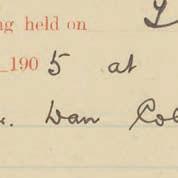 ng held on
190 5 at
. Dan Co